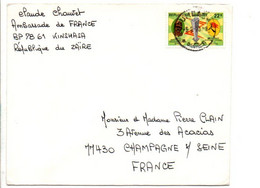 Claude Chauvet
Ambassade de FRANCE
BP 7861 KINSHASA
République du ZAÏRE
Monsieur et Madame Pierre CLAIN
3 Avenue des Acacias
77430 CHAMPAGNE s/ SEINE
FRANCE